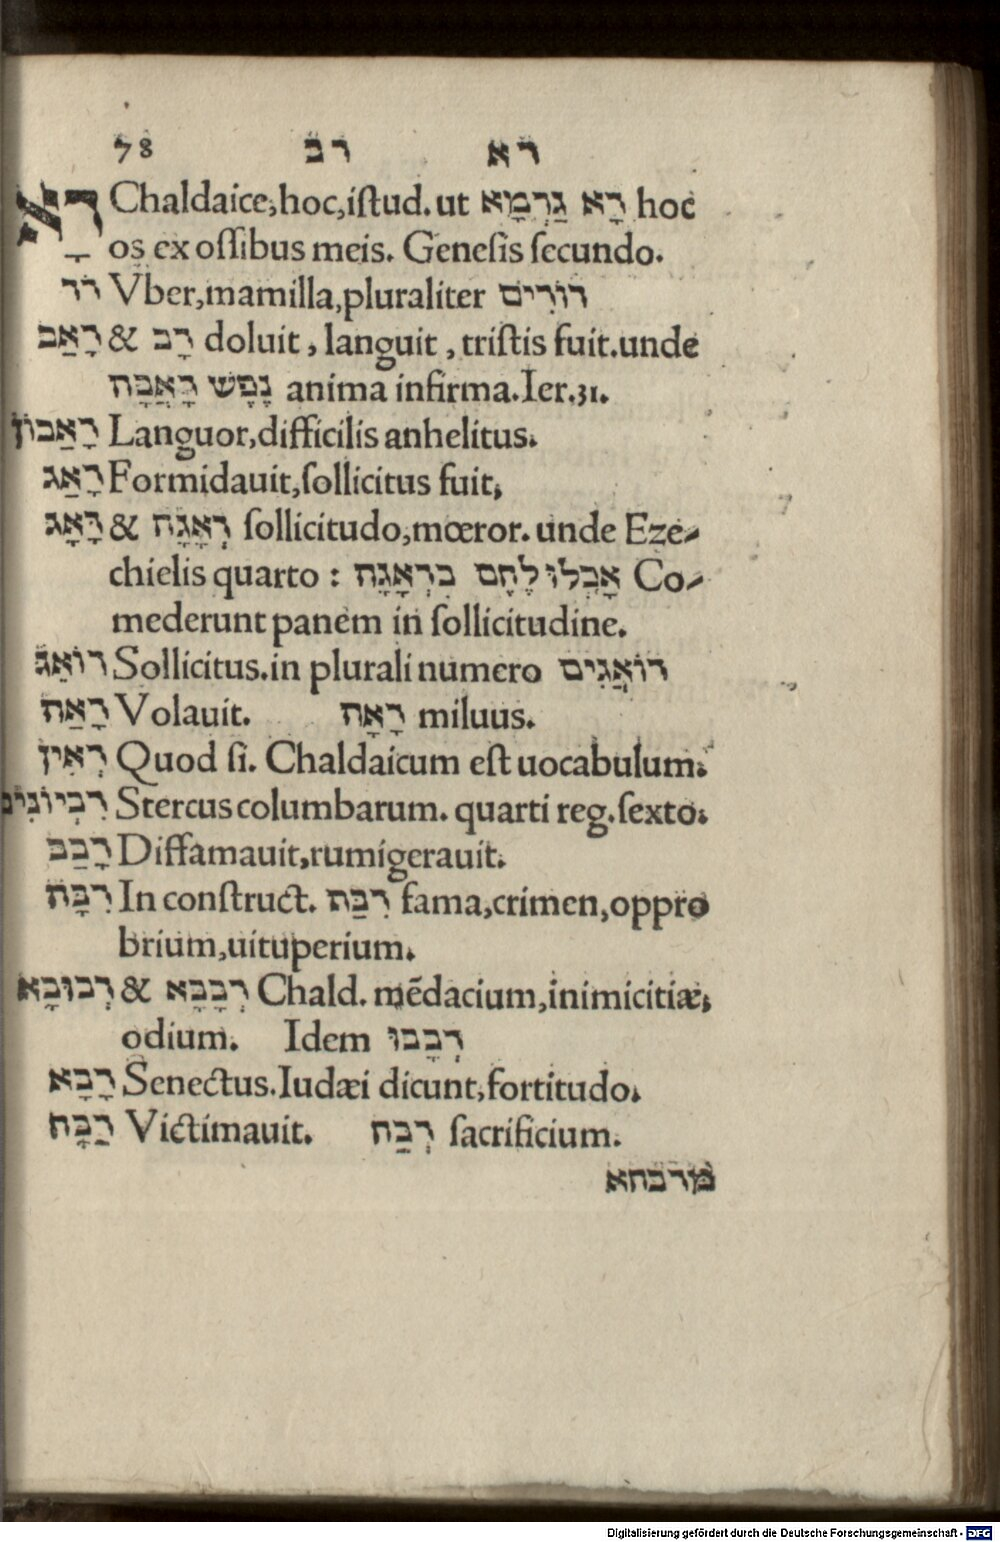 78 דב דא
דָא Chaldaice, hoc, iſtud. ut דָא גַרְמָא hoc
os ex oſſibus meis. Geneſis ſecundo.
דֹד Vber, mamilla, pluraliter דוֹדִים
דָאַב & דָב doluit, languit, triſtis fuit. unde
נֶפֶש דָאֲבָה anima infirma. Ier. 31.
דַאֲבוֹן Languor, difficilis anhelitus.
דָאַג Formidauit, ſollicitus fuit,
דָאָג & דְאָגָה ſollicitudo, mœror. unde Eze-
chielis quarto : אָכְלוּ לֶחֶם בִדְאָגָה Co-
mederunt panem in ſollicitudine.
דוֹאֵג Sollicitus. in plurali numero דוֹאֲגִים
דָאַה Volauit. דָאָה miluus.
דְאִין Quod ſi. Chaldaicum eſt uocabulum.
דִבְיוֹנִים Stercus columbarum. quarti reg. ſexto.
דָבַב Diffamauit, rumigerauit.
דִבָּה In conſtruct. דִבַּת fama, crimen, oppro
brium, uituperium.
דְבוּבָא & דְבָבָא Chald. mēdacium, inimicitiæ,
odium. Idem דְבָבוּ
דָבָא Senectus. Iudæi dicunt, fortitudo.
דַבָּח Victimauit. דְבַח ſacrificium.
מדבחא
Digitalisierung gefördert durch die Deutsche Forschungsgemeinschaft - DFG